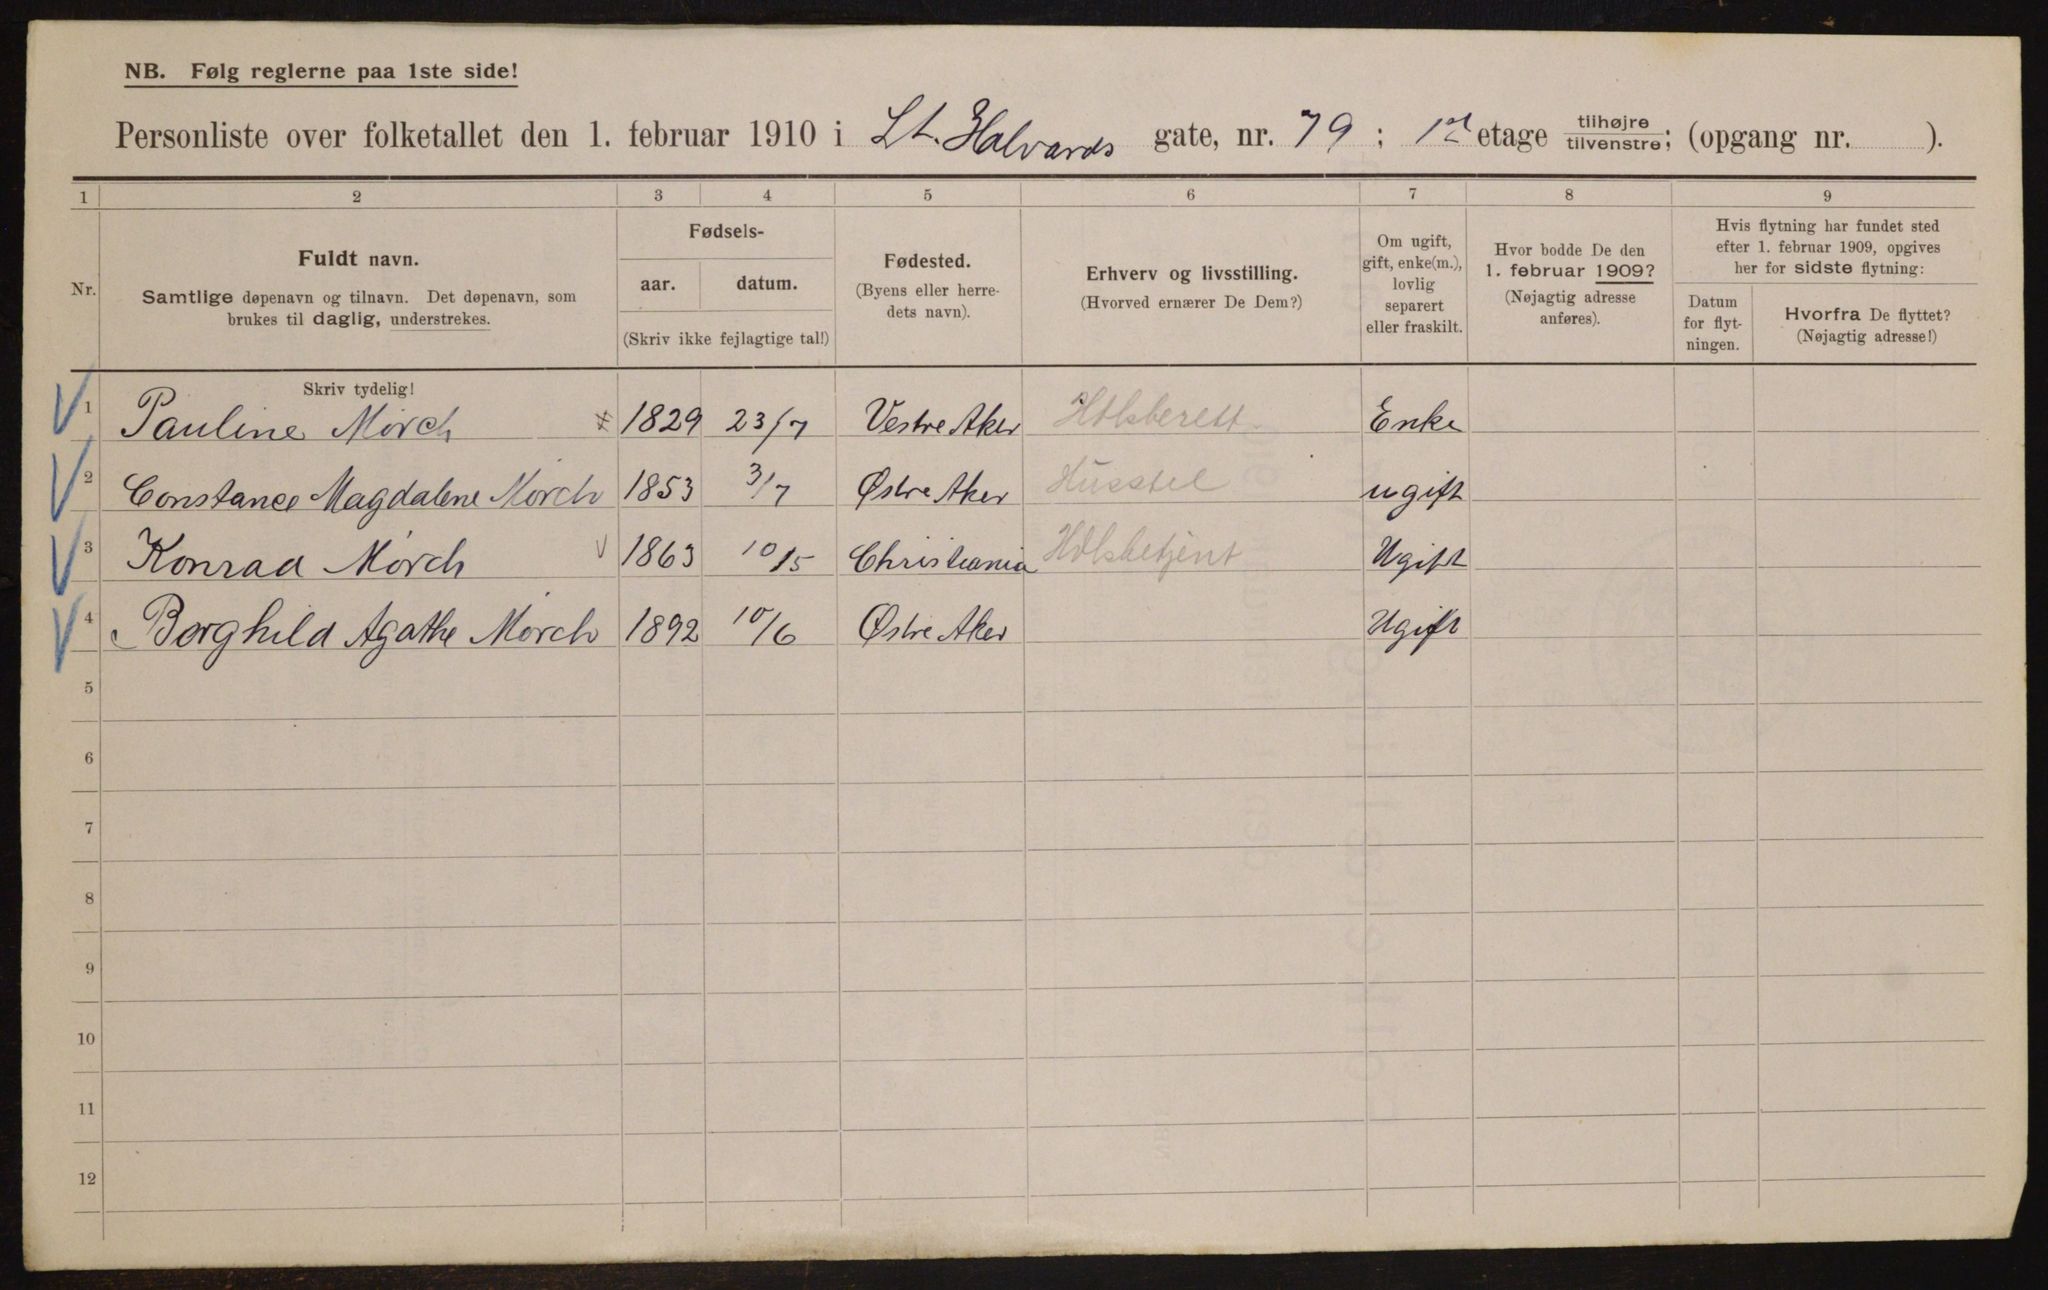 NB. Følg reglerne paa 1ste side!
Personliste over folketallet den 1. februar 1910 i St. Halvards gate, nr. 79 ; 1ste etage tilhøjre/tilvenstre; (opgang nr. ).
1 2 3 4 5 6 7 8 9
Nr.
Fuldt navn.
Samtlige døpenavn og tilnavn. Det døpenavn, som
brukes til daglig, understrekes.
Fødsels-
aar. datum.
(Skriv ikke fejlagtige tal!)
Fødested.
(Byens eller herre-
dets navn).
Erhverv og livsstilling.
(Hvorved ernærer De Dem?)
Om ugift,
gift, enke(m.),
lovlig
separert
eller fraskilt.
Hvor bodde De den
1. februar 1909?
(Nøjagtig adresse
anføres).
Hvis flytning har fundet sted
efter 1. februar 1909, opgives
her for sidste flytning:
Datum
for flyt-
ningen.
Hvorfra De flyttet?
(Nøjagtig adresse!)
Skriv tydelig!
1 Pauline Mørch 1829 23/7 Vestre Aker Enke
2 Constance Magdalene Mørch 1853 3/7 Østre Aker Husstel ugift
3 Konrad Mørch 1863 10/5 Christiania Hdlsbetjent Ugift
4 Borghild Agathe Mørch 1892 10/6 Østre Aker Ugift
5
6
7
8
9
10
11
12